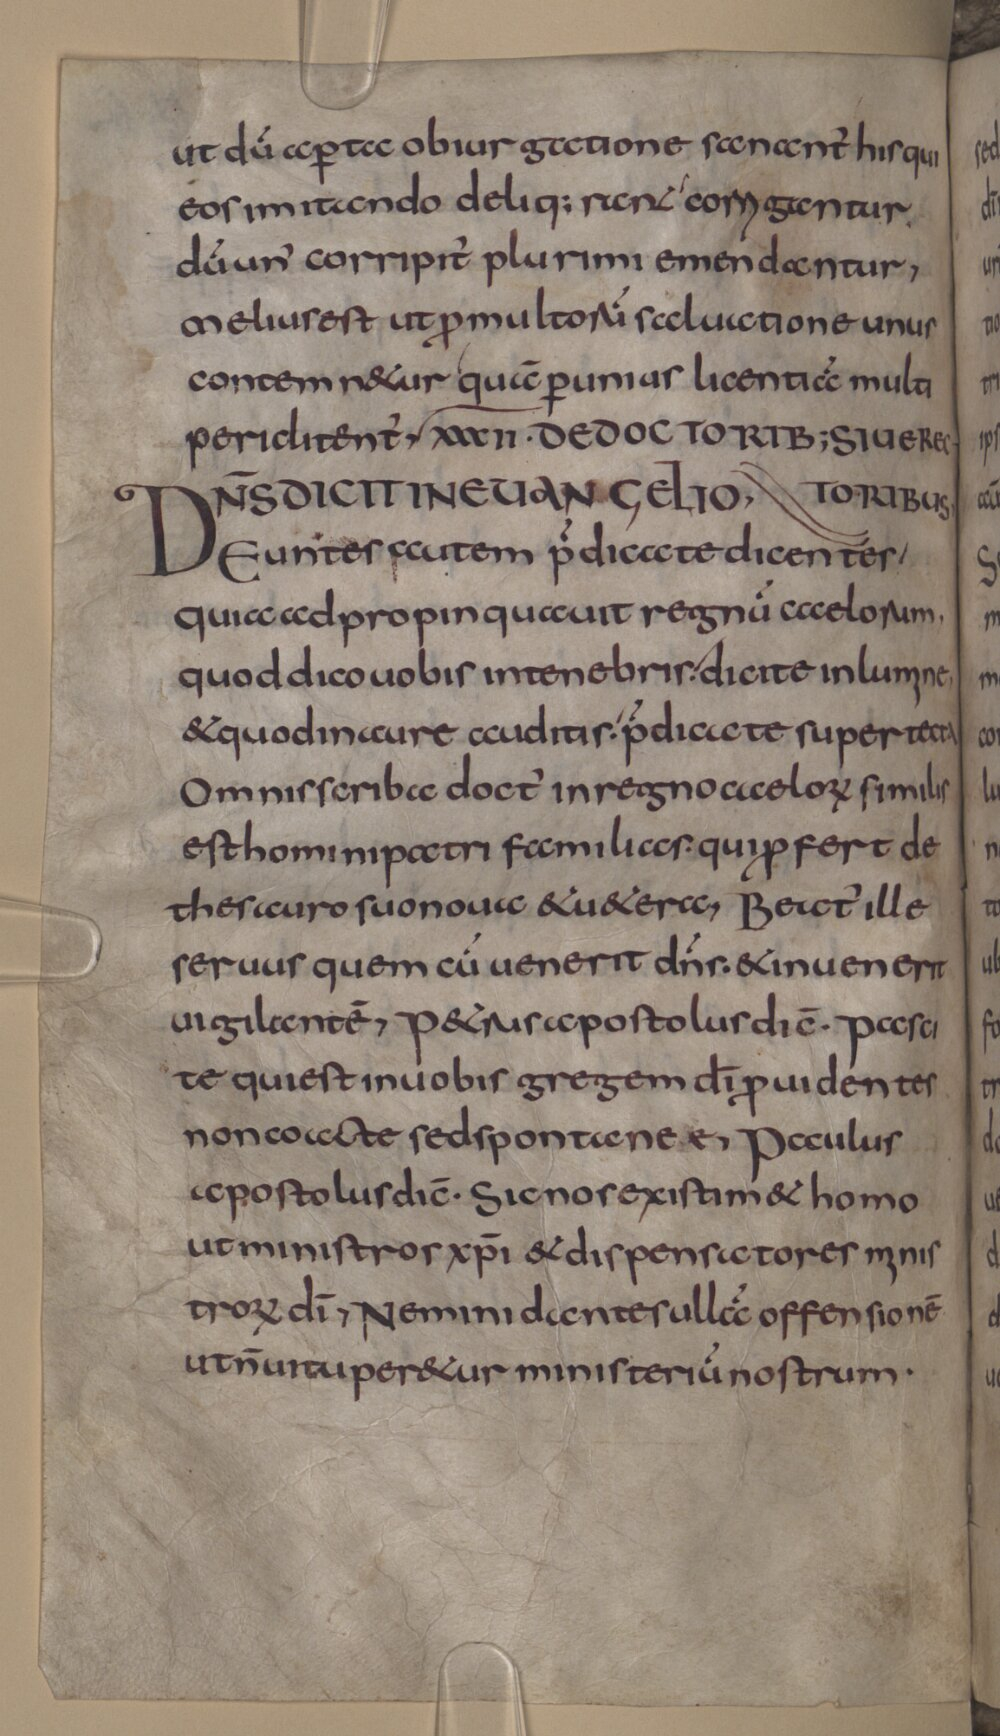 ut dū aperta obiurgatione sanant̄ his qui
eos imitando deliq; rant corrigantur
dū un' corripit̄ plurimi emendantur,
melius est ut ꝓ multorū saluatione unus
contemn&ur quā ꝑ unius licentiā multi
periclitent̄, xxxii · DE DOCTORIB; SIUE REC
DN̄S DICIT IN EUANGELIO, TORIBUS,
Euntes autem p̄dicate dicentes
quia adpropinquauit regnū caelorum,
quod dico uobis in tenebris. dicite in lumine,
& quod in aure auditis. p̄dicate super tecta
Omnis scriba doct' in regno caeloꝝ similis
est homini patri familias. qui ꝓfert de
thesauro suo noua & u&era, Beat' ille
seruus quem cū uenerit dn̄s. & inuenerit
uigilantē, P&rus apostolus dic̄. Pasci
te qui est in uobis gregem dī ꝓuidentes
non coacte sed spontanee, Paulus
apostolus dic̄. Sic nos existim& homo
ut ministros xp̄i & dispensatores minis
troꝝ dī, Nemini dantes ullā offensionē
ut n̄ uituper&ur ministeriū nostrum.